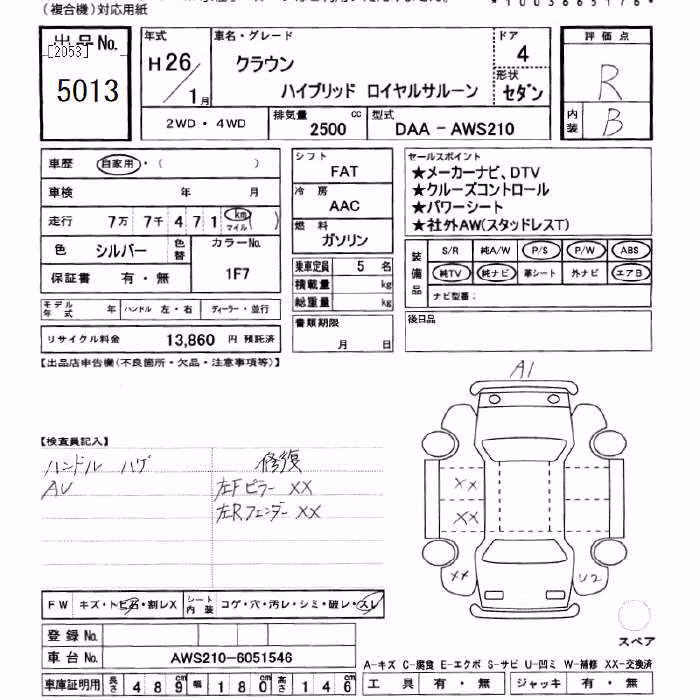 （複合機）対応用紙
*1003665176*
出品No.
[2053]
5013
年式
H26/1月
車名・グレード
クラウン
ハイブリッド ロイヤルサルーン
ドア
4
形状
セダン
評価点
R
内装
B
2WD・4WD
排気量
2500 cc
型式
DAA－AWS210
車歴 自家用・（ ）
車検 年 月
走行 7万 7千 4 7 1 km マイル ( )
色 シルバー 色替
カラーNo.
1F7
保証書 有・無
モデル年式 年 ハンドル 左・右 ディーラー・並行
リサイクル料金 13,860 円 預託済
シフト
FAT
冷房
AAC
燃料
ガソリン
乗車定員 5 名
積載量 kg
総重量 kg
書類期限
月 日
セールスポイント
★メーカーナビ、DTV
★クルーズコントロール
★パワーシート
★社外AW(スタッドレスT)
装備品
S/R 純A/W P/S P/W ABS
純TV 純ナビ 革シート 外ナビ エアB
ナビ型番：
後日品
【出品店申告欄(不良箇所・欠品・注意事項等)】
A1
【検査員記入】
ハンドル ハゲ 修復
AU 左Fピラー XX
左Rフェンダー XX
XX
XX
XX
U2
FW キズ・トビ石・割レX シート内装 コゲ・穴・汚レ・シミ・破レ・スレ
スペア
登録No.
車台No. AWS210-6051546
A-キズ C-腐食 E-エクボ S-サビ U-凹ミ W-補修 XX-交換済
車庫証明用 長さ 4 8 9 cm 幅 1 8 0 cm 高さ 1 4 6 cm
工具 有・無 ジャッキ 有・無